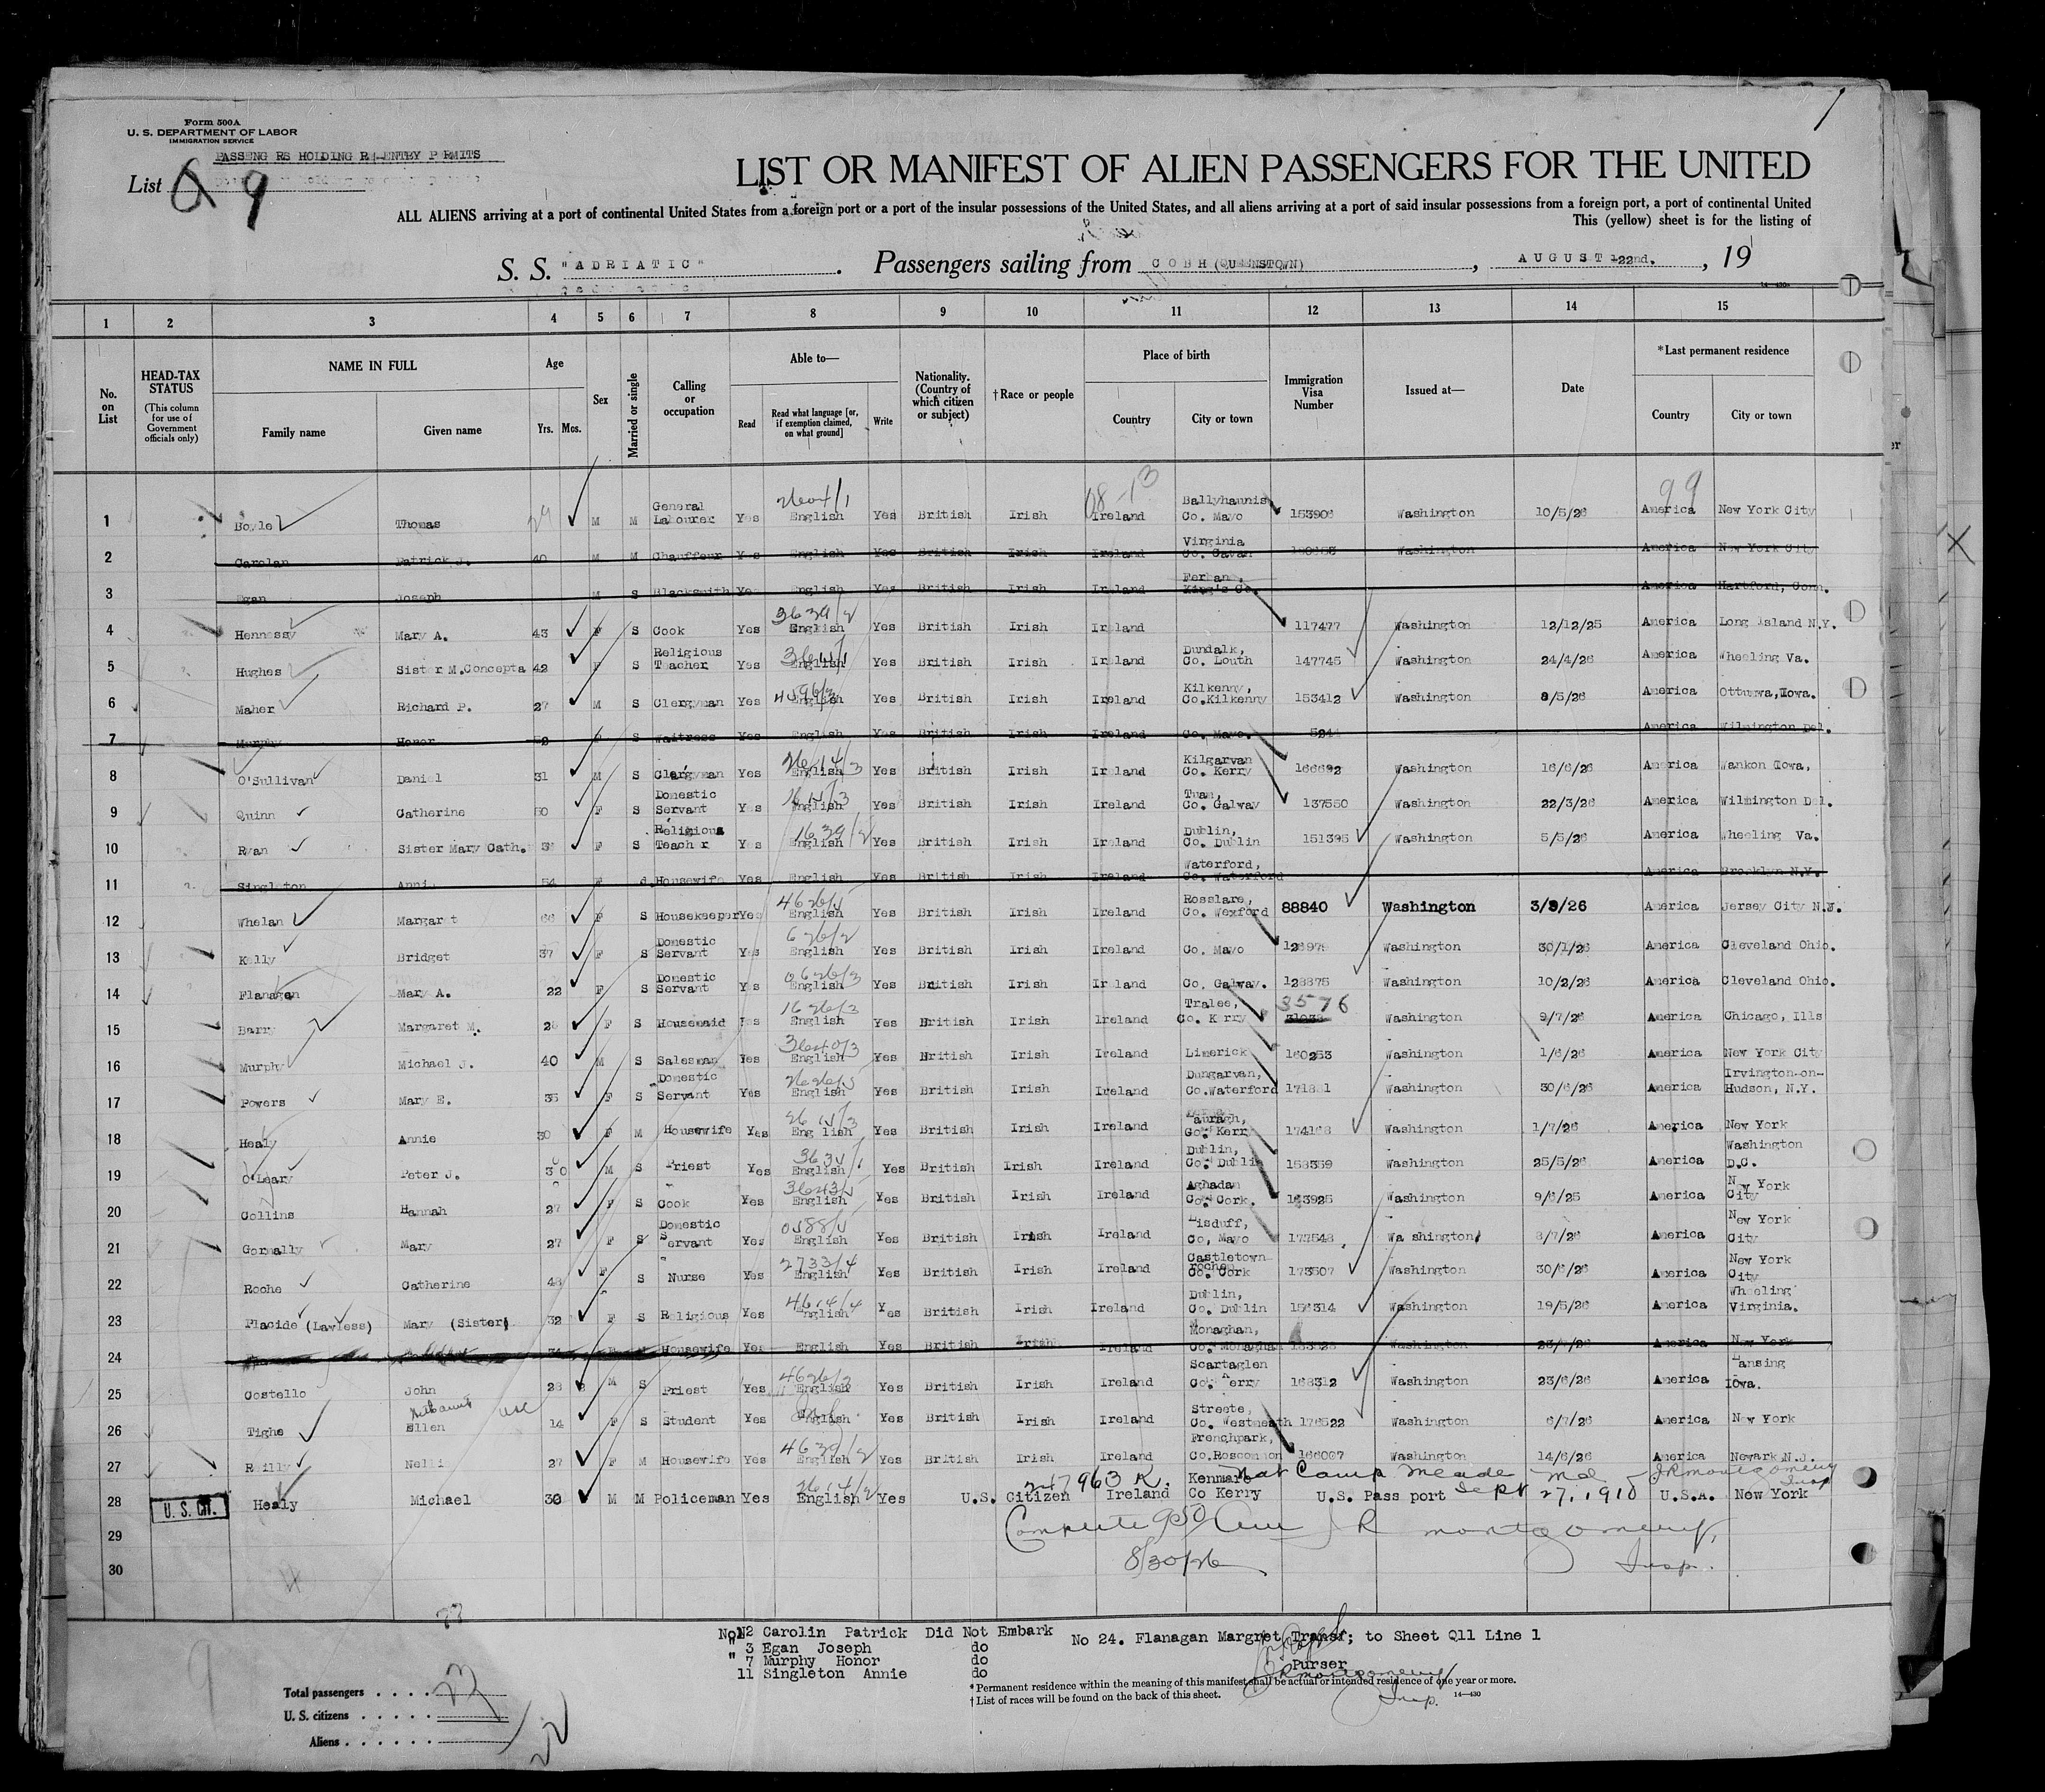 Form 500A
U. S. DEPARTMENT OF LABOR
IMMIGRATION SERVICE
PASSENG RS HOLDING RE-ENTRY PERMITS
List Q 9
1
LIST OR MANIFEST OF ALIEN PASSENGERS FOR THE UNITED
ALL ALIENS arriving at a port of continental United States from a foreign port or a port of the insular possessions of the United States, and all aliens arriving at a port of said insular possessions from a foreign port, a port of continental United
This (yellow) sheet is for the listing of
S. S. "ADRIATIC" . Passengers sailing from COBH (QUEENSTOWN) , AUGUST 22nd. , 19
14—430
1 2 3 4 5 6 7 8 9 10 11 12 13 14 15
No. on List
HEAD-TAX STATUS (This column for use of Government officials only)
NAME IN FULL
Family name Given name
Age
Yrs. Mos.
Sex
Married or single
Calling or occupation
Able to—
Read Read what language [or, if exemption claimed, on what ground] Write
Nationality. (Country of which citizen or subject)
†Race or people
Place of birth
Country City or town
Immigration Visa Number
Issued at—
Date
*Last permanent residence
Country City or town
1 Boyle Thomas M M General Labourer Yes English Yes British Irish Ireland Ballyhaunis Co. Mayo 153906 Washington 10/5/26 America New York City
2 Carolan Patrick J. 40 M M Chauffeur Yes English Yes British Irish Ireland Virginia Co. Cavan Washington America New York City
3 Egan Joseph M S Blacksmith Yes English Yes British Irish Ireland Ferbane, King's Co. America Hartford, Conn.
4 Hennessy Mary A. 43 F S Cook Yes English Yes British Irish Ireland 117477 Washington 12/12/25 America Long Island N.Y.
5 Hughes Sister M.Concepta 42 F S Religious Teacher Yes English Yes British Irish Ireland Dundalk, Co. Louth 147745 Washington 24/4/26 America Wheeling Va.
6 Maher Richard P. 27 M S Clergyman Yes English Yes British Irish Ireland Kilkenny, Co.Kilkenny 153412 Washington 8/5/26 America Ottumwa, Iowa.
7 Murphy Honor F S Waitress Yes English Yes British Irish Ireland Co. Mayo. America Wilmington Del.
8 O'Sullivan Daniel 31 M S Clergyman Yes English Yes British Irish Ireland Kilgarvan Co. Kerry 166692 Washington 16/6/26 America Wankon Iowa,
9 Quinn Catherine 50 F S Domestic Servant Yes English Yes British Irish Ireland Tuam, Co. Galway 137550 Washington 22/3/26 America Wilmington Del.
10 Ryan Sister Mary Cath. F S Religious Teach r Yes English Yes British Irish Ireland Dublin, Co. Dublin 151395 Washington 5/5/26 America Wheeling Va.
11 Singleton Annie 54 F Housewife Yes English Yes British Irish Ireland Waterford, Co. Waterford America Brooklyn N.Y.
12 Whelan Margaret 66 F S Housekeeper Yes English Yes British Irish Ireland Rosslare, Co. Wexford 88840 Washington 3/9/26 America Jersey City N.J.
13 Kelly Bridget 37 F S Domestic Servant Yes English Yes British Irish Ireland Co. Mayo Washington 30/1/26 America Cleveland Ohio.
14 Flanagan Mary A. 22 F S Domestic Servant Yes English Yes British Irish Ireland Co. Galway. 128875 Washington 10/2/26 America Cleveland Ohio.
15 Barry Margaret M. F S Housemaid Yes English Yes British Irish Ireland Tralee, Co. K rry 3576 Washington 9/7/26 America Chicago, Ills
16 Murphy Michael J. 40 M S Salesman Yes English Yes British Irish Ireland Limerick 160253 Washington 1/6/26 America New York City
17 Powers Mary E. 35 F S Domestic Servant Yes English Yes British Irish Ireland Dungarvan, Co.Waterford 171881 Washington 30/6/26 America Irvington-on-Hudson, N.Y.
18 Healy Annie 30 F M Housewife Yes English Yes British Irish Ireland Lauragh, Co. Kerr 174168 Washington 1/7/26 America New York
19 O'Leary Peter J. 30 M S Priest Yes English Yes British Irish Ireland Dublin, Co. Dublin 158359 Washington 25/5/26 America Washington D.C.
20 Collins Hannah 27 F S Cook Yes English Yes British Irish Ireland Aghadan Co. Cork. 163925 Washington 9/6/25 America New York City
21 Gormally Mary 27 F S Domestic Servant Yes English Yes British Irish Ireland Lisduff, Co, Mayo 177548 Washington 8/7/26 America New York City
22 Roche Catherine 48 F S Nurse Yes English Yes British Irish Ireland Castletown roche, Co. Cork 173507 Washington 30/6/26 America New York City
23 Placide (Lawless) Mary (Sister) 32 F S Religious Yes English Yes British Irish Ireland Dublin, Co. Dublin 156314 Washington 19/5/26 America Wheeling Virginia.
24 Housewife Yes English Yes British Irish Ireland Monaghan, Co. Monaghan Washington America New York
25 Costello John 28 M S Priest Yes English Yes British Irish Ireland Scartaglen Co. Kerry 168312 Washington 23/6/26 America Lansing Iowa.
26 Tighe Ellen 14 F S Student Yes English Yes British Irish Ireland Streete, Co. Westmeath 176522 Washington 6/7/26 America New York
27 Reilly Nellie 27 F M Housewife Yes English Yes British Irish Ireland Frenchpark, Co.Roscommon 166007 Washington 14/6/26 America Newark N.J.
247963 K. Nat Camp Meade Md Sept 27, 1918 J R Montgomery Insp
28 U. S. CIT. Healy Michael 30 M M Policeman Yes English Yes U.S. Citizen Ireland Kenmare Co Kerry U.S. Pass port U.S.A. New York
29 Complete 950 J R Montgomery,
8/30/26 Insp.
30
No. 2 Carolin Patrick Did Not Embark
" 3 Egan Joseph do
" 7 Murphy Honor do
11 Singleton Annie do
No 24. Flanagan Margret Transf; to Sheet Q11 Line 1
Purser
J R Montgomery
Insp.
Total passengers . . . . 23
U. S. citizens . . . . .
Aliens . . . . . .
* Permanent residence within the meaning of this manifest shall be actual or intended residence of one year or more.
† List of races will be found on the back of this sheet.
14—430